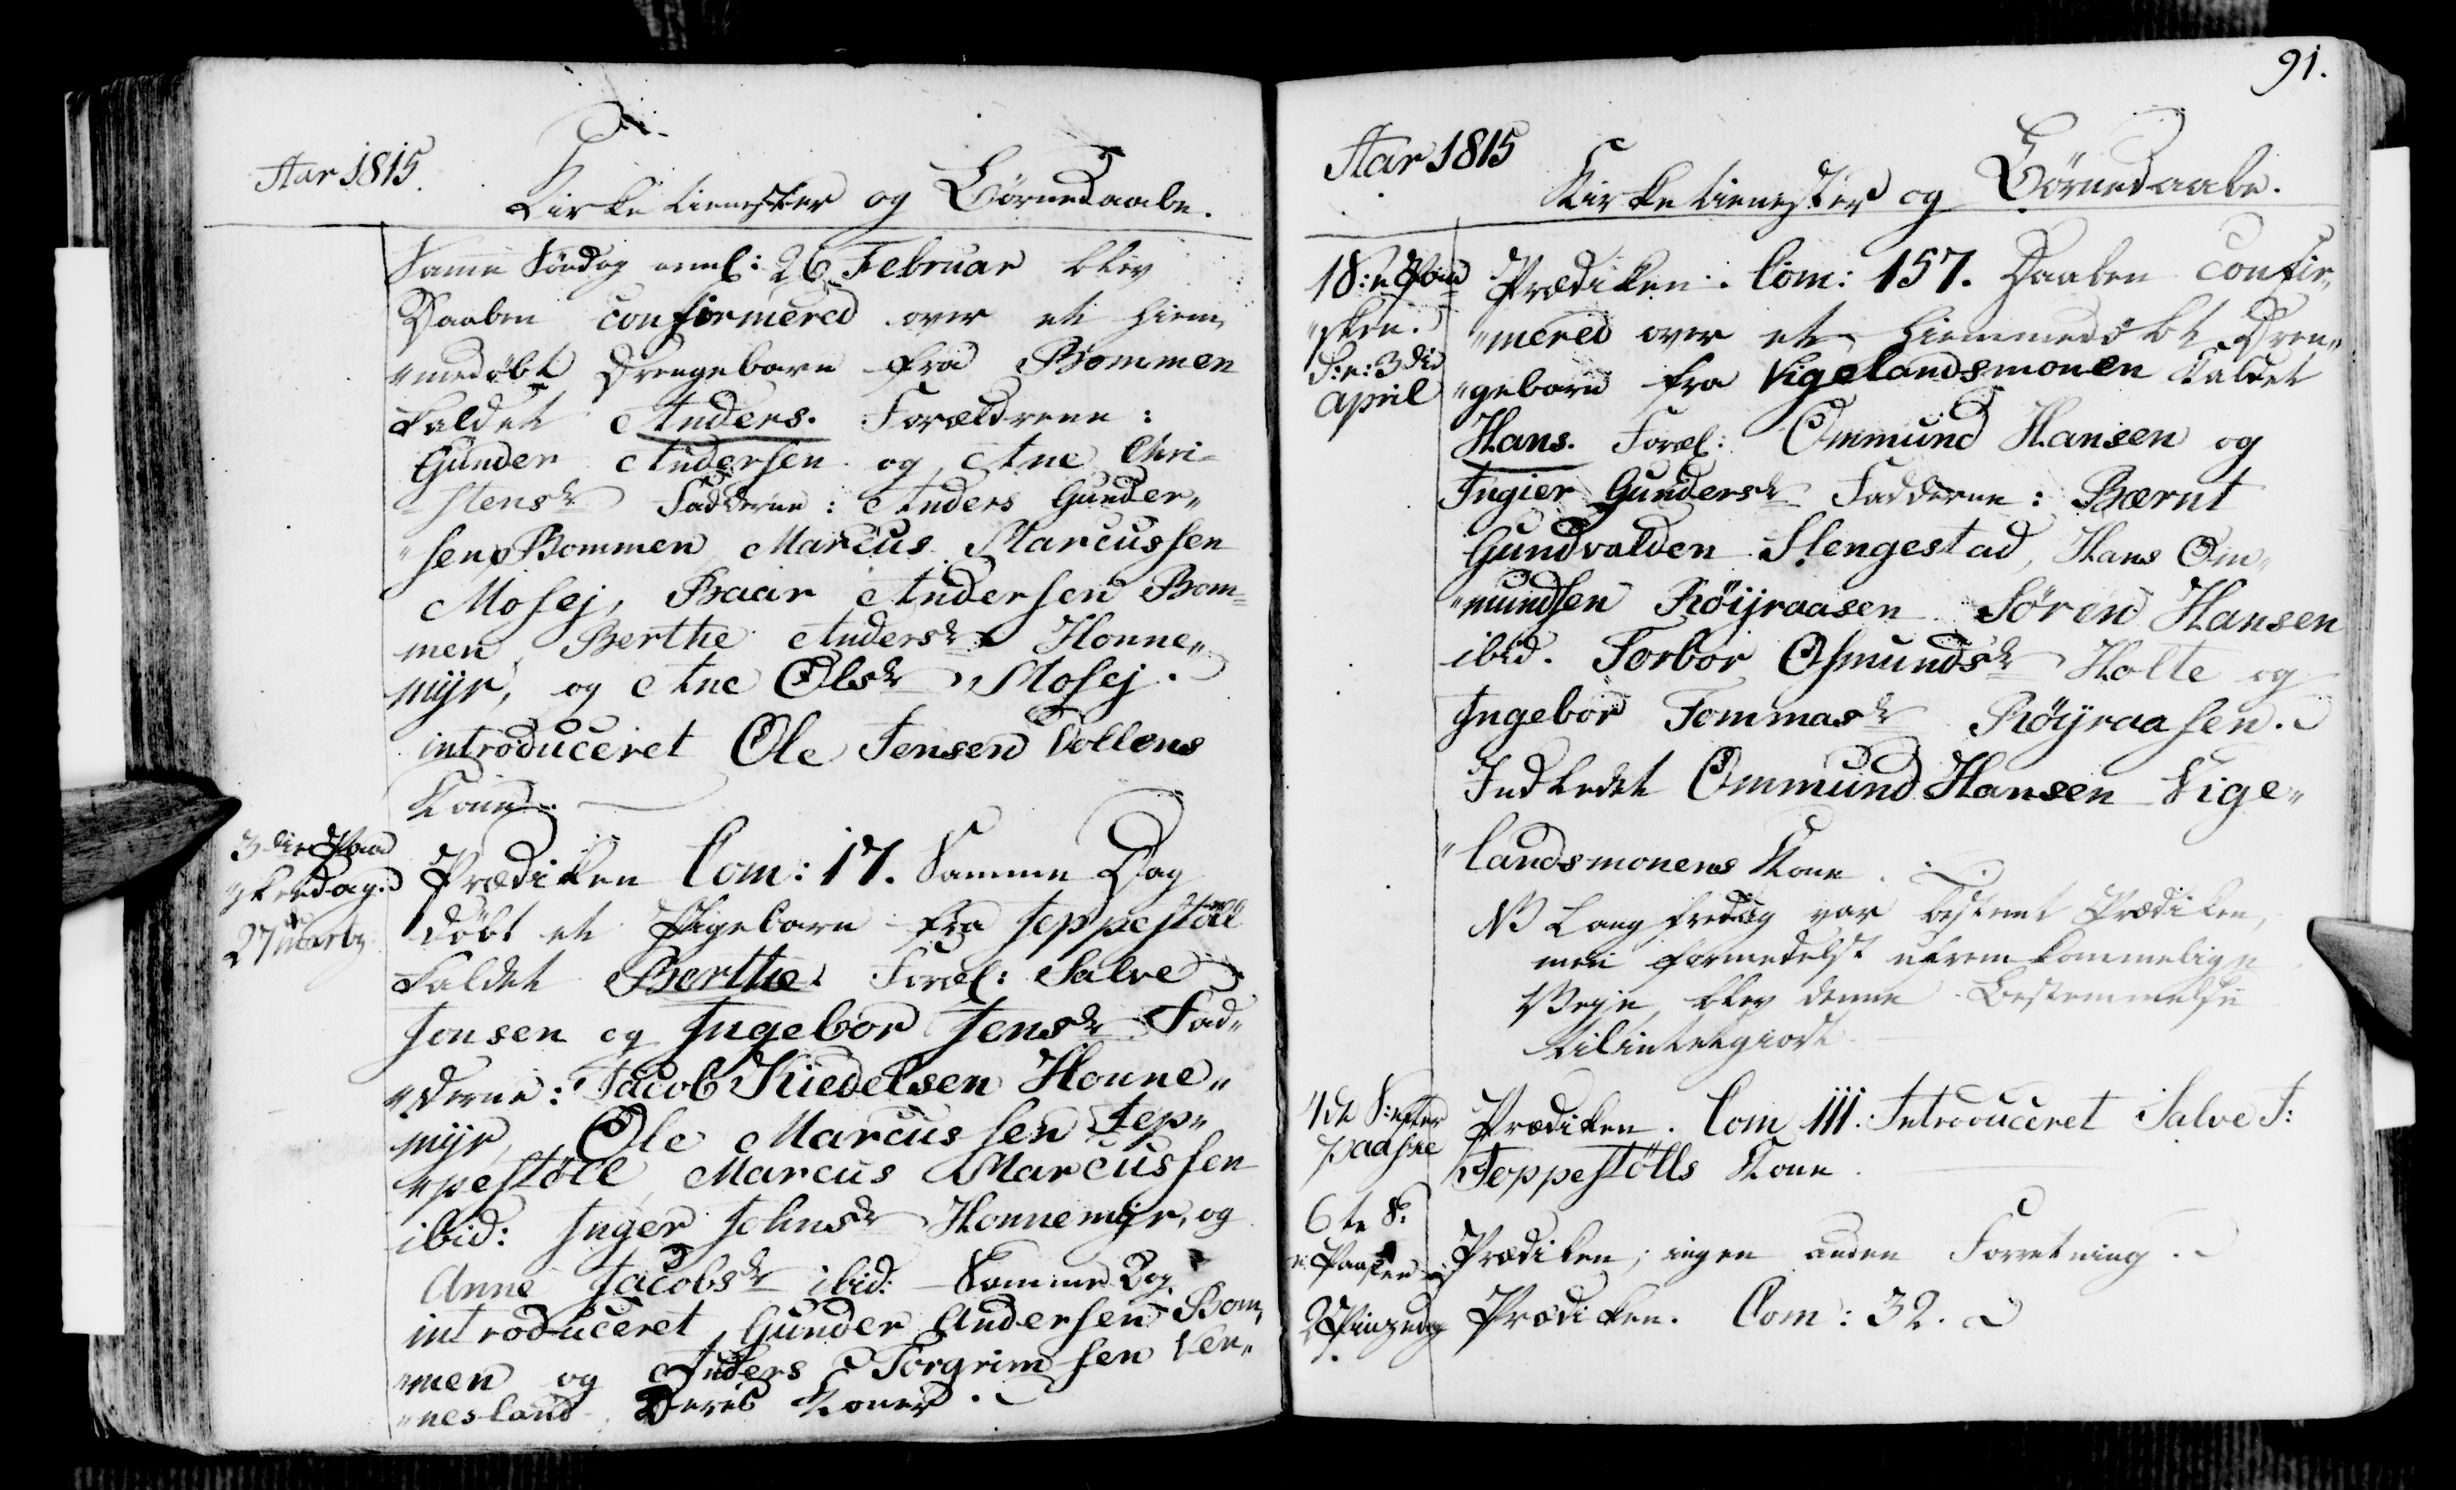 Aar 1815.
Kirketienester og Börnedaabe.
Samme Söndag : 26 Februar blev
Daaben confirmered over et hiem„
„medöbt Drengebarn fra Bommen
kaldet Anders. Forældrene:
Gunder Andersen og Ane Chri-
stensdr Fadderne: Anders Gunder„
„sen Bommen, Marcus Marcussen
Mosej, Baar Andersen Bom=
men, Berthe Andersdr Honne„
mijr, og Ane Olsdr Mosej.
introduceret Ole Jensen Vollens
Kone.
3die Paa
skedag.
27 Marty
Prædiken Com: 17. Samme Dag
döbt et Pigebarn fra Jeppestöll
kaldet Berthe. Foræl: Salve
Jonsen og Ingebor Jensdr Fad„
„derne: Jacob Kiedelsen Honne„
mijr, Ole Marcussen Jep„
„pestöll, Marcus Marcussen
ibid: Inger Johnsdr Honnemijr, og
Anne Jacobsdr ibid: Samme Dag
introduceret Gunder Andersen Bom„
„men og Anders Torgrimsen Ven„
„nesland Deres Koner.
91.
Aar 1815
Kirketienester og Börnedaabe.
1 S: e Paa
„sken.
d: e: 3die
April
Prædiken. Com: 157. Daaben confir„
„mered over et hiemmedöbt Dren„
„gebarn fra Vigelandsmonen kaldet
Hans. Foræl: Ommund Hansen og
Ingier Gundersdr Fadderne: Bærnt
Gundvalden Slengestad, Hans Om„
„mundsen Röijraasen Sören Hansen
ibid. Torbor Osmundsdr Holte og
Ingebor Tommasdr Röijraasen.
Indledet Ommund Hansen Vige„
„landsmonens Kone.
NB Langfredag var bestemt Prædiken,
men formedelst ufremkommelige
Veje, blev denne Bestemmelse
tilintetgiort.
4de S: efter
paaske
Prædiken. Com 111. Introduceret Salve J:
Jeppestölls Kone.
6te S.
e. Paasken
Prædiken; ingen anden Forretning.
2 Pinzedag
Prædiken. Com: 32.